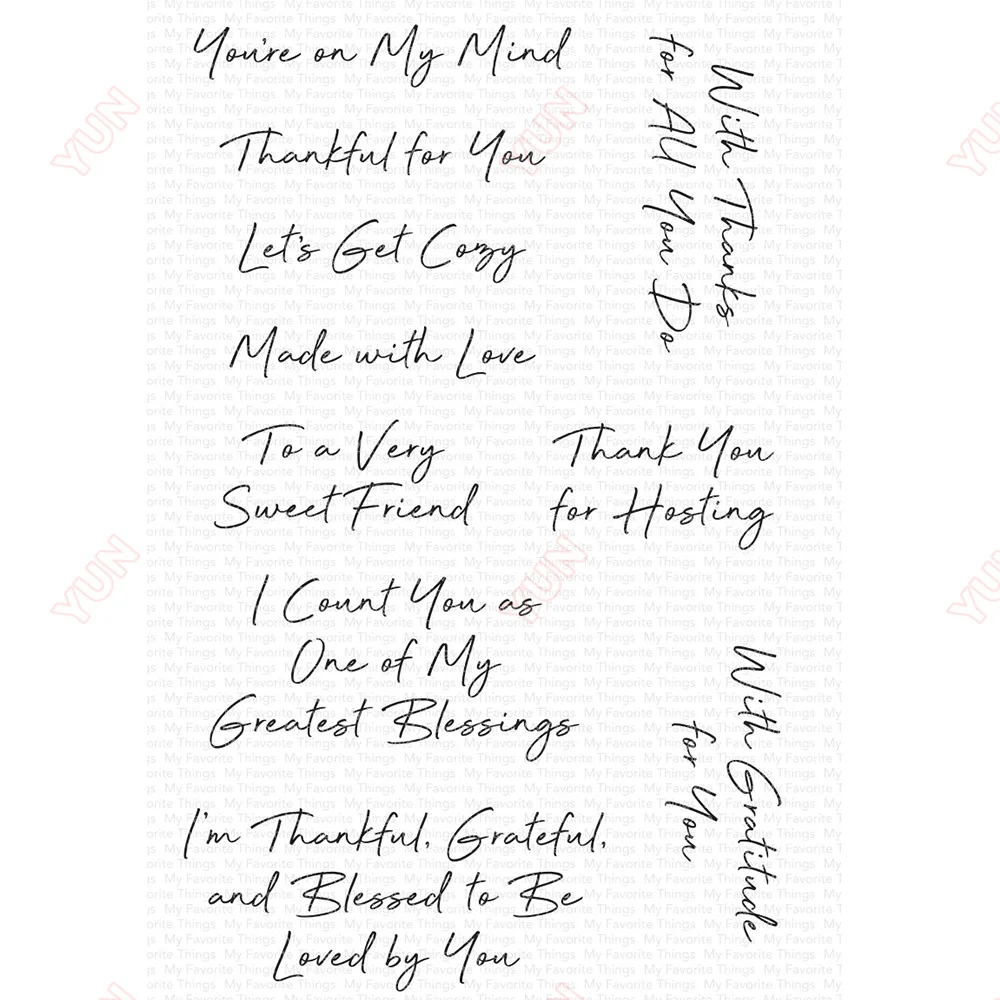 You're on My Mind
Thankful for You
Let's Get Cozy
Made with Love
To a Very
Sweet Friend
I Count You as
One of My
Greatest Blessings
I'm Thankful, Grateful,
and Blessed to Be
Loved by You
With Thanks
for All You Do
Thank You
for Hosting
With Gratitude
for You
My Favorite Things
YUN